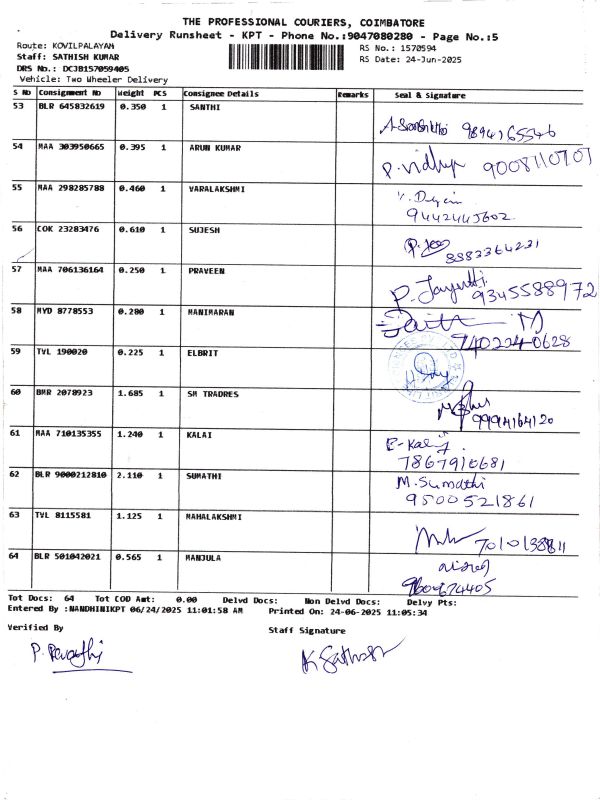 THE PROFESSIONAL COURIERS, COIMBATORE
Delivery Runsheet - KPT - Phone No.:9047080280 - Page No.:5
Route: KOVILPALAYAM
RS No.: 1570594
Staff: SATHISH KUMAR
RS Date: 24-Jun-2025
DRS No.: DCJB157059405
Vehicle: Two Wheeler Delivery
S No Consignment No Weight PCS Consignee Details Remarks Seal & Signature
53 BLR 645832619 0.350 1 SANTHI
9894165546
54 MAA 303950665 0.395 1 ARUN KUMAR
P. Vidhya 9008110707
55 MAA 298285788 0.460 1 VARALAKSHMI
9442445602
56 COK 23283476 0.610 1 SUJESH
8883364231
57 MAA 706136164 0.250 1 PRAVEEN
9345588972
58 MYD 8778553 0.280 1 MANIMARAN
740224-0628
59 TVL 190020 0.225 1 ELBRIT
60 BMR 2078923 1.685 1 SM TRADRES
9994164120
61 MAA 710135355 1.240 1 KALAI
7867910681
62 BLR 9000212810 2.110 1 SUMATHI
M. Sumathi
9500521861
63 TVL 8115581 1.125 1 MAHALAKSHMI
7010138811
64 BLR 501042021 0.565 1 MANJULA
9600674405
Tot Docs: 64 Tot COD Amt: 0.00 Delvd Docs: Non Delvd Docs: Delvy Pts:
Entered By :NANDHINIKPT 06/24/2025 11:01:58 AM Printed On: 24-06-2025 11:05:34
Verified By
Staff Signature
P. Revathi
K Sathish